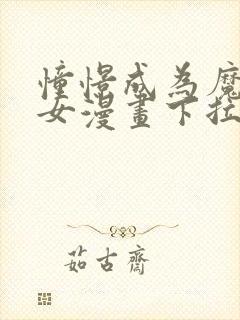 憧憬成為魔
女漫畫下拉
茹古齋